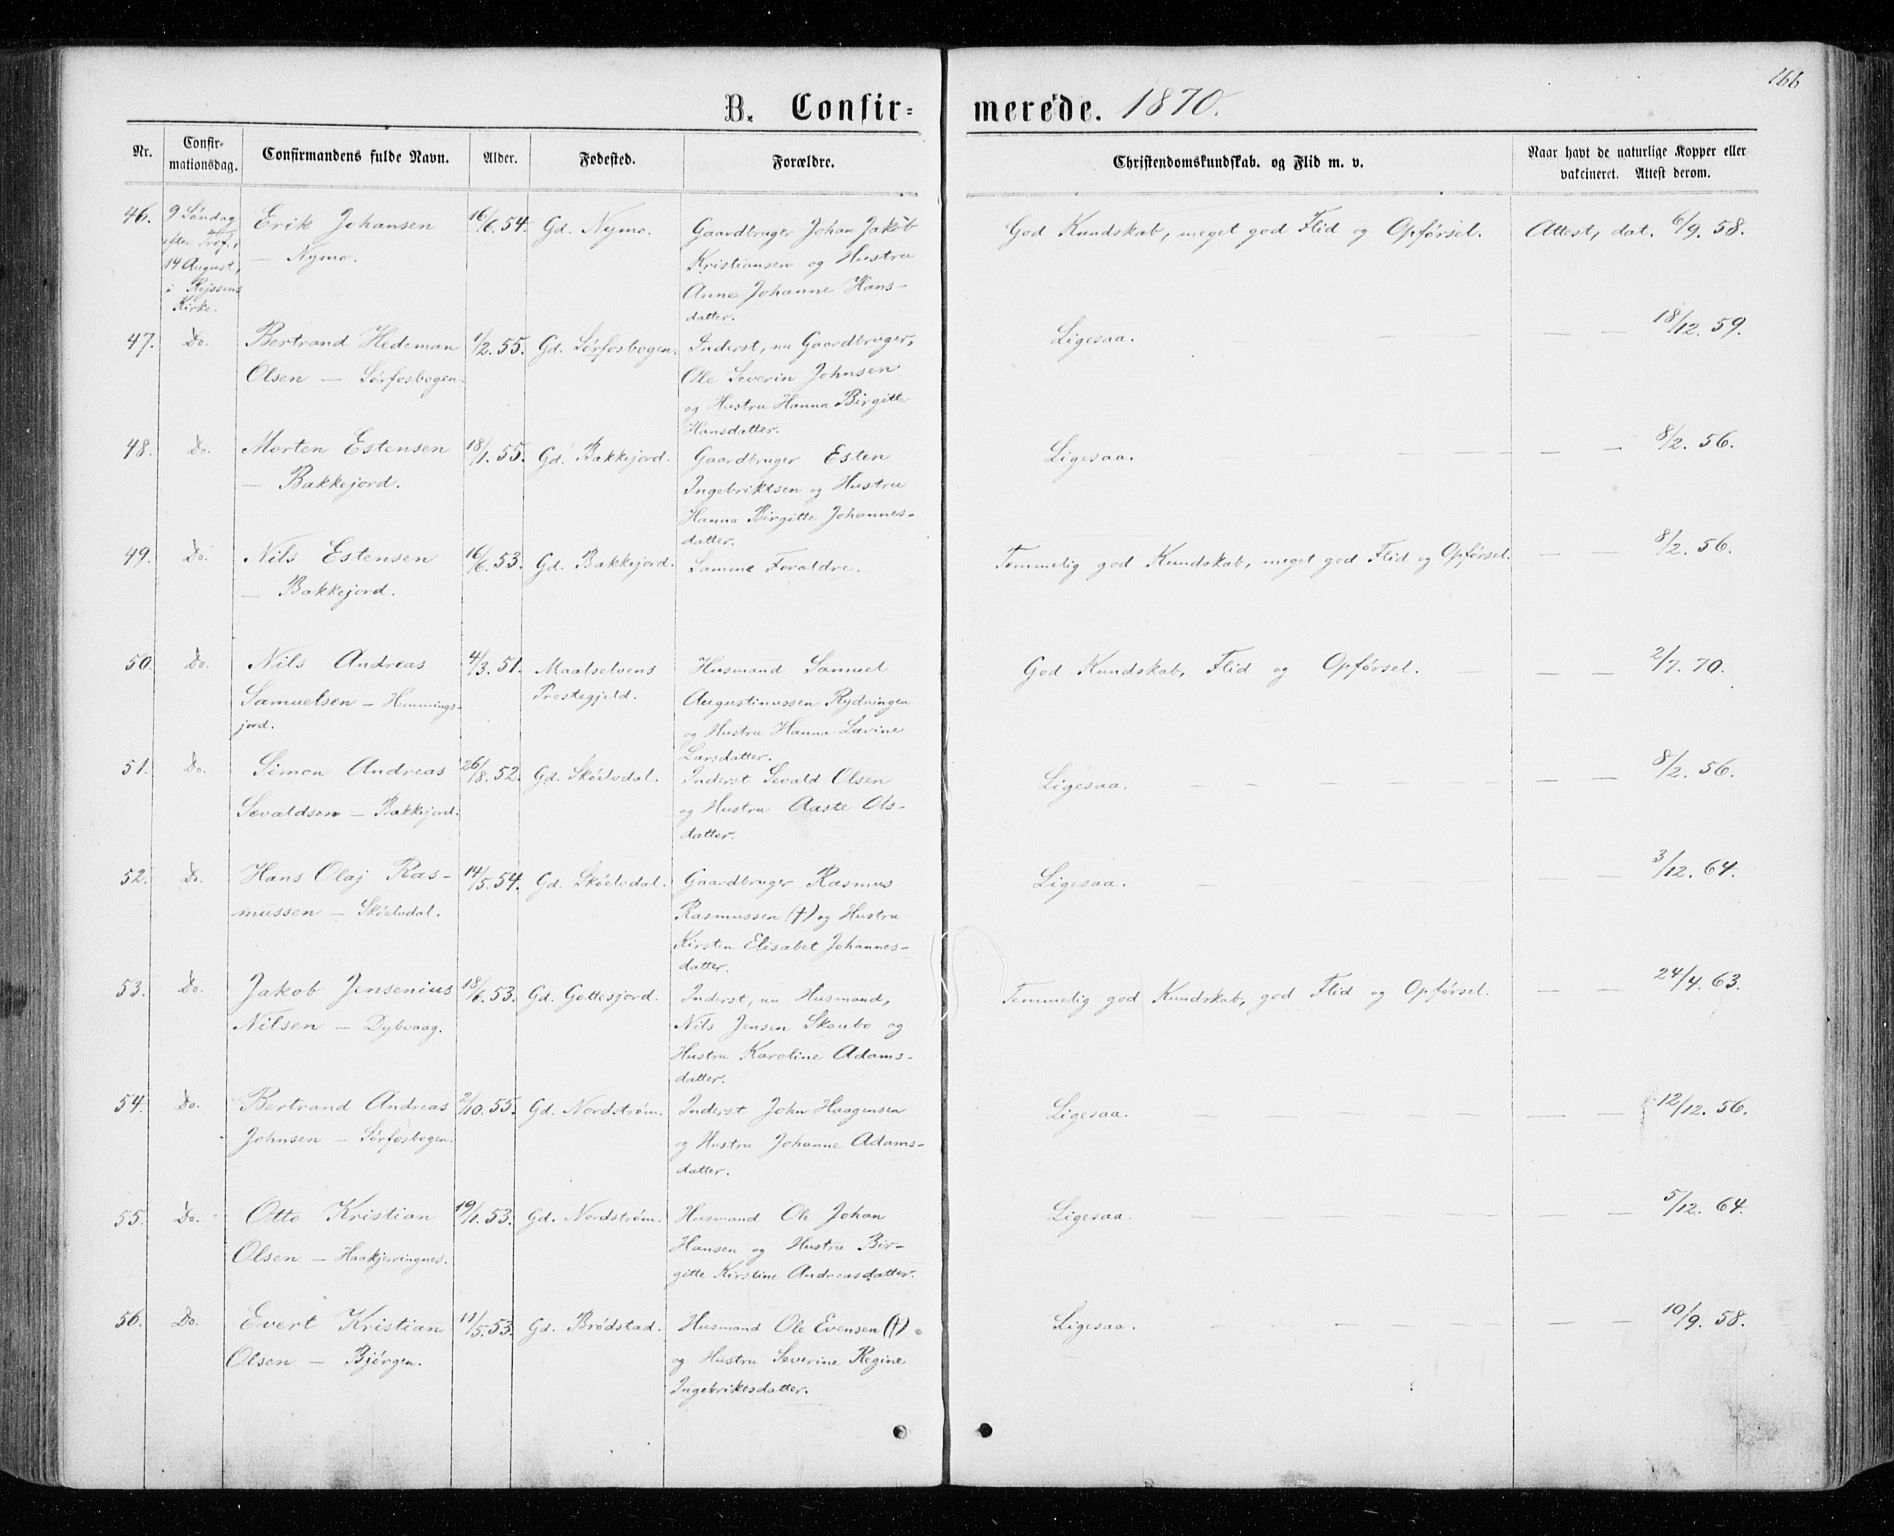 166
B. Confir= merede. 1870.
Nr. Confir-mationsdag. Confirmandens fulde Navn. Alder. Fødested. Forældre. Christendomskundskab. og Flid m. v. Naar havt de naturlige Kopper eller vakcineret. Attest derom.
46. 9 Søndag Erik Johansen 16/6. 54. Gd. Nymo. Gaardbruger Johan Jakob God Kundskab, meget god Flid og Opførsel. Attest, dat. 6/9. 58.
efter Tref., — Nymo. Kristiansen og Hustru
14 August, Anne Johanne Hans-
i Rejssens datter.
Kirke.
47. Do. Bertrand Hedeman 1/2. 55. Gd. Sørfosbogen. Inderst, nu Gaardbruger, Ligesaa. — — 18/12. 59.
Olsen — Sørfosbogen. Ole Severin Johnsen
og Hustru Hanna Birgitte
Hansdatter.
48. Do. Morten Estensen 18/1. 55. Gd. Bakkejord. Gaardbruger Esten Ligesaa. — — 8/2. 56.
— Bakkejord. Ingebriktsen og Hustru
Hanna Birgitte Johannes-
datter.
49. Do. Nils Estensen 16/6. 53. Gd. Bakkejord. Samme Forældre. Temmelig god Kundskab, meget god Flid og Opførsel. — — 8/2. 56.
— Bakkejord.
50. Do. Nils Andreas 4/3. 51. Maalselvens Husmand Samuel God Kundskab, Flid og Opførsel. — — 2/7. 70.
Samuelsen — Hemmings- Prestegjeld. Augustinussen Rydningen
jord. og Hustru Hanna Lavine
Larsdatter.
51. Do. Simon Andreas 26/8. 52. Gd. Skøelvdal. Inderst Sevald Olsen Ligesaa. — — 8/2. 56.
Sevaldsen — Bakkejord. og Hustru Aaste Ols-
datter.
52. Do. Hans Olaj Ras- 14/5. 54. Gd. Skøelvdal. Gaardbruger Rasmus Ligesaa. — — 3/12. 64.
mussen — Skøelvdal. Rasmussen (†) og Hustru
Kirsten Elisabet Johannes-
datter.
53. Do. Jakob Jensenius 18/6. 53. Gd. Gottesjord. Inderst, nu Husmand, Temmelig god Kundskab, god Flid og Opførsel. — — 24/4. 63.
Nilsen — Dybvaag. Nils Jensen Skoubo og
Hustru Karoline Adams-
datter.
54. Do. Bertrand Andreas 2/10. 55. Gd. Nordstrøm. Inderst John Haagensen Ligesaa. — — 12/12. 56.
Johnsen — Sørfosbogen. og Hustru Johanne Adams-
datter.
55. Do. Otto Kristian 19/1. 53. Gd. Nordstrøm. Husmand Ole Johan Ligesaa. — — 5/12. 64.
Olsen — Haakjerringnes. Hansen og Hustru Bir-
gitte Kirstine Andreasdatter.
56. Do. Evert Kristian 11/5. 53. Gd. Brødstad. Husmand Ole Evensen (†) Ligesaa. — — 10/9. 58.
Olsen — Bjørgen. og Hustru Severine Regine
Ingebriktsdatter.